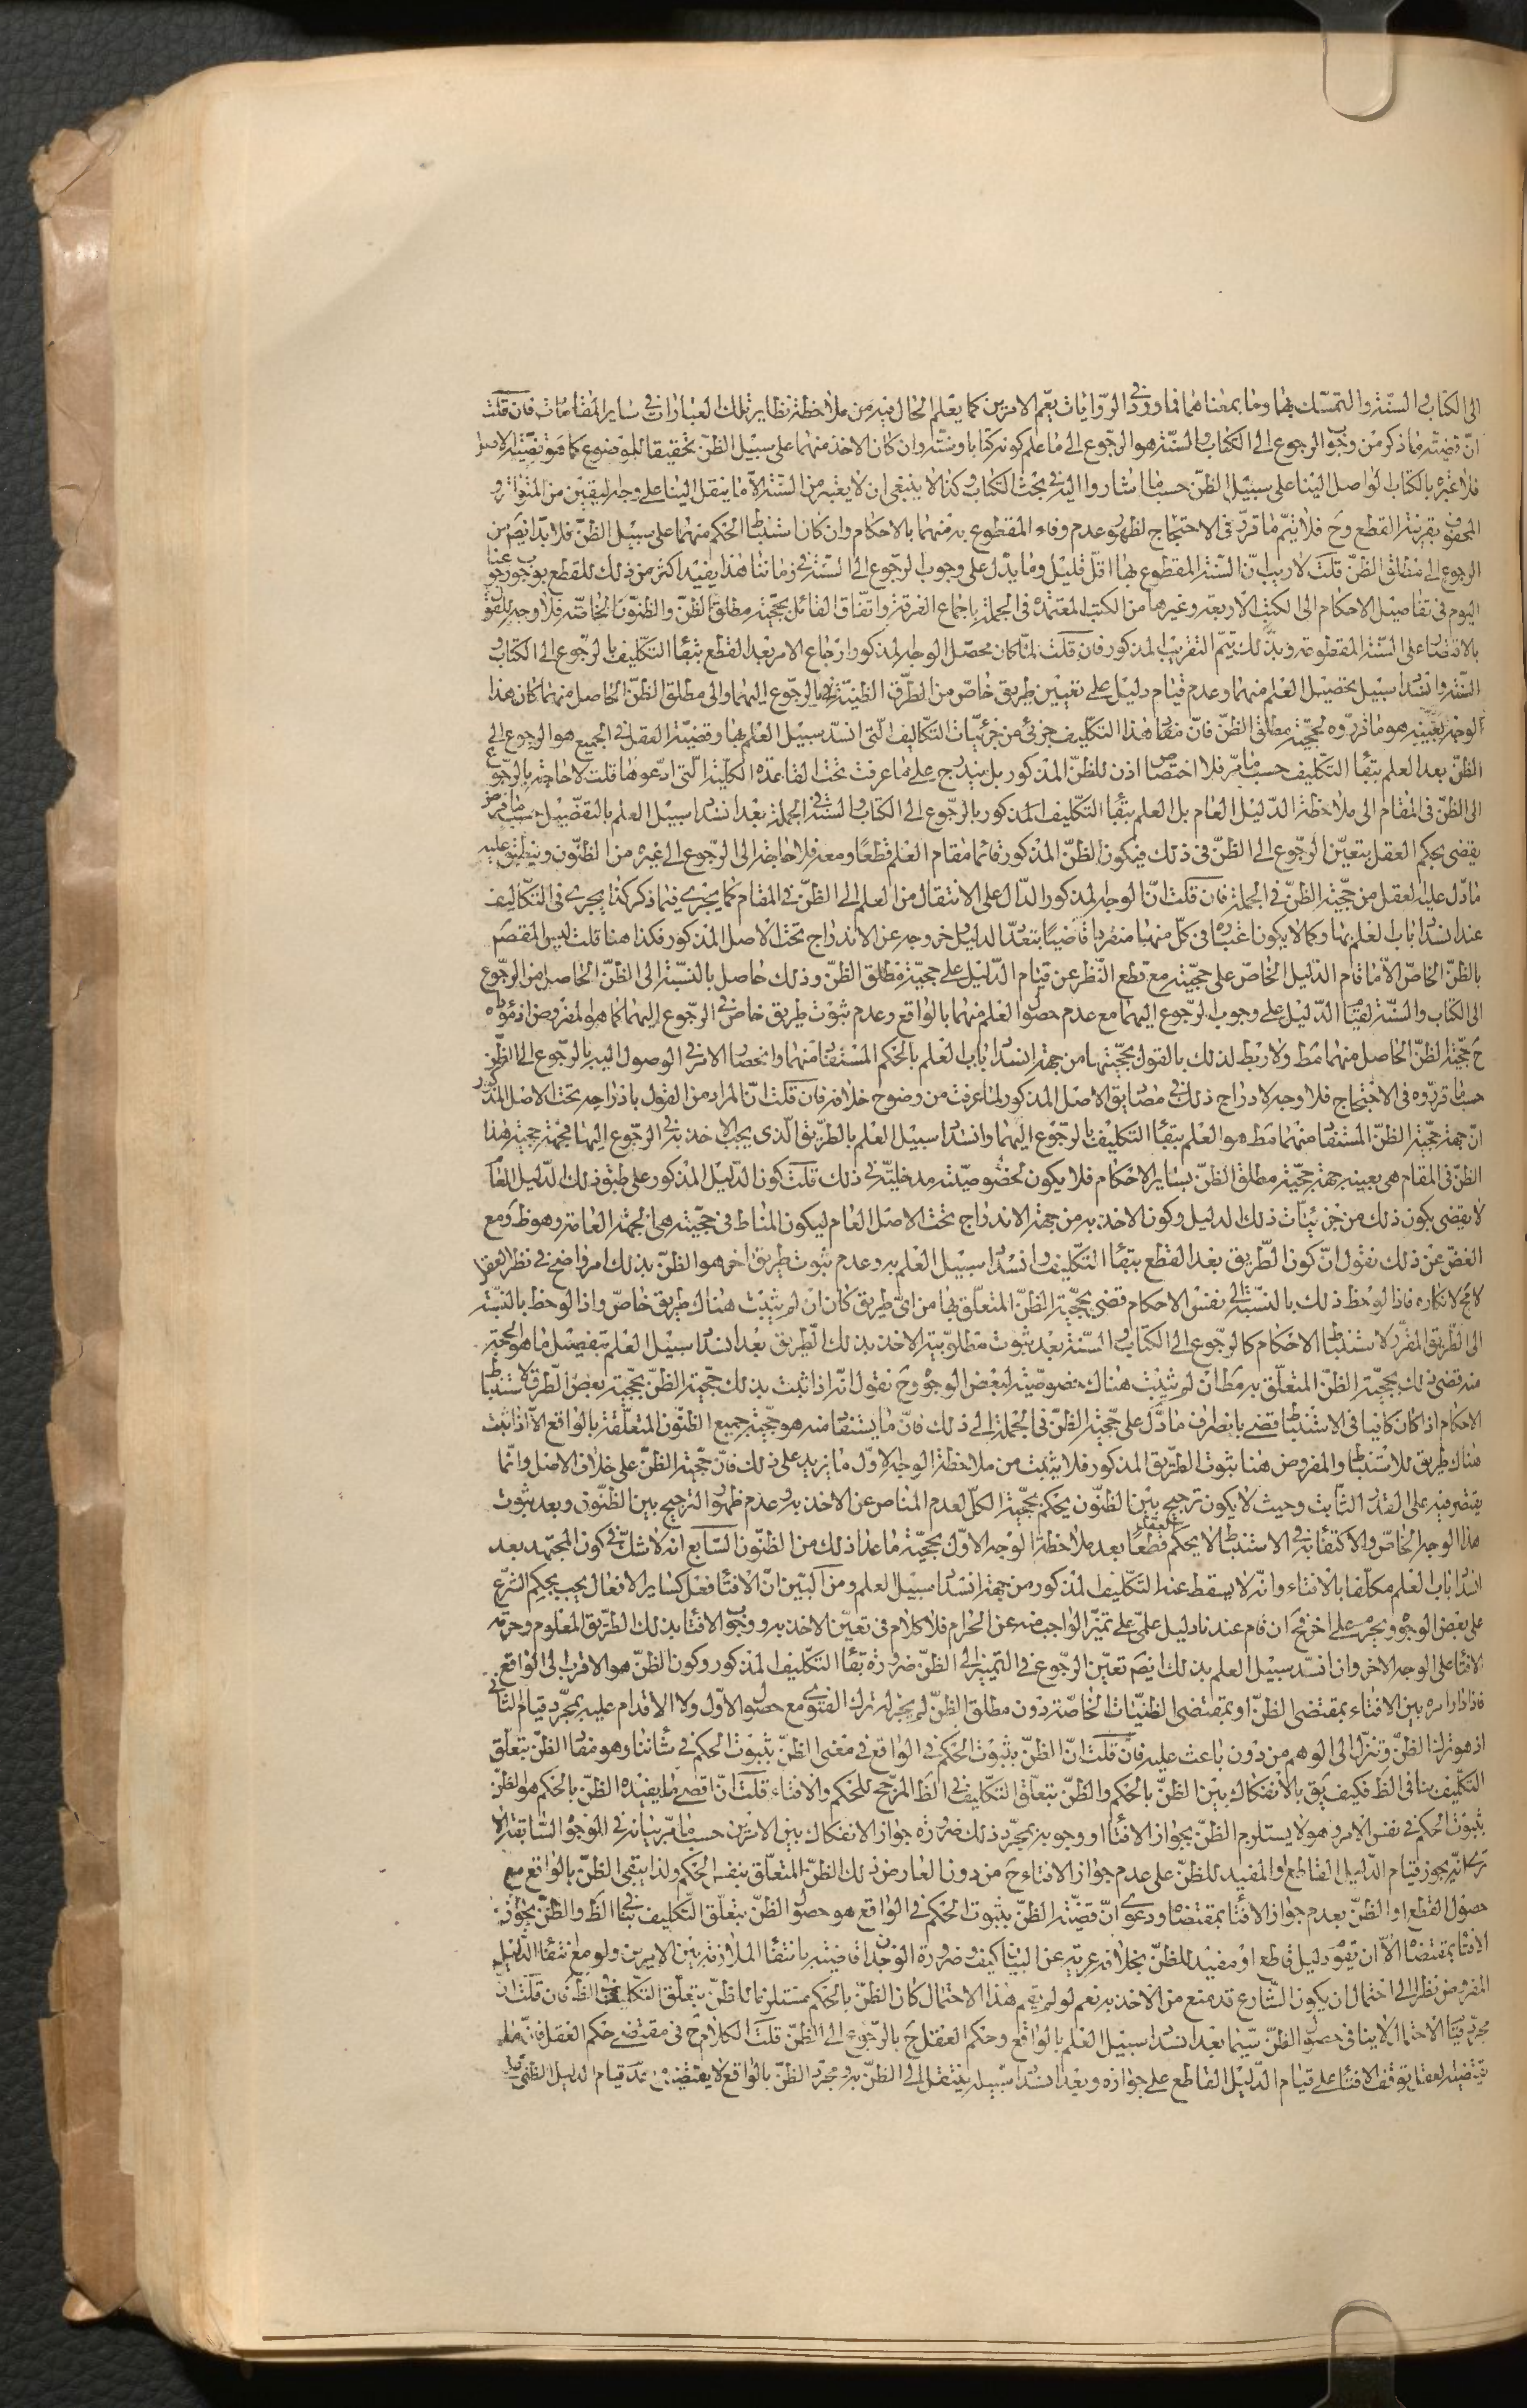 الى الكتاب و السنة والتمسك بهما وما بمعناهما فما ورد في الروايات يعم الامرين كما يعلم الحال فيه من ملاحظة نظاير تلك العبارات في ساير المقامات فان قلت
ان قضية ما ذكر من وجوب الرجوع الى الكتاب و السنة هو الرجوع الى ما علم كونه كتابا وسنة وان كان الاخذ منهما على سبيل الظن تحقيقا للموضوع كما هو قضية الاصل
فلا عبرة بالكتاب لو اصل الينا على سبيل الظن حسب ما اشاروا اليه في بحث الكتاب وكذا لا ينبغى ان لا يعتبر من السنة الا ما ينقل الينا على وجه اليقين من المتواتر و
المحفوف بقرينة القطع وح فلا يتم ما قرر في الاحتجاج لظهور عدم وفاء المقطوع به منهما بالاحكام وان كان استنباط الحكم منهما على سبيل الظن فلا بد ايضم من
الرجوع الى مطلق الظن قلت لا ريب ان السنة المقطوع بها اقل قليل وما يدل على وجوب الرجوع الى السنة في زماننا هذا يفيد اكثر من ذلك للقطع بوجوب رجوعنا
اليوم في تفاصيل الاحكام الى الكتب الاربعة وغيرها من الكتب المعتمدة في الجملة باجماع الفرقة واتفاق القائل بحجية مطلق الظن والظنون الخاصة فلا وجه للقول
بالاقتصار على السنة المقطوعة وبذلك يتم التقريب المذكور فان قلت لما كان محصل الوجه المذكور ارجاع الامر بعد القطع ببقاء التكليف بالرجوع الى الكتاب و
السنة وانسداد سبيل تحصيل العلم منهما وعدم قيام دليل على تعيين طريق خاص من الطرق الظنية في الرجوع اليهما والى مطلق الظن الحاصل منهما كان هذا
الوجه بعينه هو ما قرروه لحجية مطلق الظن فان مفاد هذا التكليف جزئى من جزئيات التكاليف التى انسد سبيل العلم بها وقضية العقل في الجميع هو الرجوع الى
الظن بعد العلم ببقاء التكليف حسب ما مر فلا اختصاص اذن للظن المذكور بل يندرج على ما عرفت تحت القاعدة الكلية التى ادعوها قلت لا حاجة بالرجوع
الى الظن في المقام الى ملاحظة الدليل العام بل العلم ببقاء التكليف المذكور بالرجوع الى الكتاب والسنة في الجملة بعد انسداد سبيل العلم بالتفصيل حسب ما فرض
يقضى بحكم العقل بتعين الرجوع الى الظن في ذلك فيكون الظن المذكور قائما مقام العلم قطعا ومعه فلا حاجة الى الرجوع الى غيره من الظنون وينطبق عليه
ما دل عليه العقل من حجية الظن في الجملة فان قلت ان الوجه المذكور الدال على الانتقال من العلم الى الظن في المقام كما يجرى فيما ذكر كذا يجرى في التكاليف
عند انسداد باب العلم بها وكما لا يكون اعتباره في كل منها منفردا قاضيا بتعدد الدليل وخروجه عن الاندراج تحت الاصل المذكور فكذا هنا قلت ليس المقصم
بالظن الخاص الا ما قام الدليل الخاص على حجيته مع قطع النظر عن قيام الدليل على حجية مطلق الظن وذلك حاصل بالنسبة الى الظن الحاصل من الرجوع
الى الكتاب والسنة لقيام الدليل على وجوب الرجوع اليهما مع عدم حصول العلم منهما بالواقع وعدم ثبوت طريق خاص في الرجوع اليهما كما هو المفروض اذ مؤداه
ح حجية الظن الحاصل منهما مط ولا ربط لذلك بالقول بحجيتهما من جهة انسداد باب العلم بالحكم المستفاد منهما وانحصار الامر في الوصول اليه بالرجوع الى الظن
حسب ما قرروه في الاحتجاج فلا وجه لادراج ذلك في مصاديق الاصل المذكور لما عرفت من وضوح خلافه فان قلت ان المراد من القول باندراجه تحت الاصل المذكور
ان جهة حجية الظن المستفاد منهما مط هو العلم ببقاء التكليف بالرجوع اليهما وانسداد سبيل العلم بالطريق الذى يجب الاخذ به في الرجوع اليهما فجهة حجية هذا
الظن في المقام هى بعينه جهة حجية مطلق الظن بساير الاحكام فلا يكون لخصوصيته مدخلية في ذلك قلت كون الدليل المذكور على طبق ذلك الدليل العام
لا يقضى بكون ذلك من جزئيات ذلك الدليل وكون الاخذ به من جهة الاندراج تحت الاصل العام ليكون المناط في حجيته هى الجهة العامة وهو ظ ومع
الغض عن ذلك نقول ان كون الطريق بعد القطع ببقاء التكليف وانسداد سبيل العلم به وعدم ثبوت طريق اخر هو الظن بذلك امر واضح في نظر العقل
لا مح لانكاره فاذا لوحظ ذلك بالنسبة الى نفس الاحكام قضى بحجية الظن المتعلق بها من اى طريق كان ان لم يثبت هناك طريق خاص واذا لوحظ بالنسبة
الى الطريق المقرر لاستنباط الاحكام كالرجوع الى الكتاب و السنة بعد ثبوت مطلوبية الاخذ بذلك الطريق بعد انسداد سبيل العلم بتفصيل ما هو الحجة
منه قضى ذلك بحجية الظن المتعلق به مط ان لم يثبت هناك خصوصية لبعض الوجوه وح نقول انه اذا ثبت بذلك حجية الظن بحجية بعض الطرق لاستنباط
الاحكام اذا كان كافيا في الاستنباط قضى بانصراف ما دل على حجية الظن في الجملة الى ذلك فان ما يستفاد منه هو حجية جميع الظنون المتعلقة بالواقع الا اذا ثبت
هناك طريق للاستنباط والمفروض هنا ثبوت الطريق المذكور فلا يثبت من ملاحظة الوجه الاول ما يزيد على ذلك فان حجية الظن على خلاف الاصل وانما
يقتصر فيه على القدر الثابت وحيث لا يكون ترجيح بين الظنون يحكم بحجية الكل لعدم المناص عن الاخذ به وعدم ظهور الترجيح بين الظنون وبعد ثبوت
هذا الوجه الخاص والاكتفاء به في الاستنباط لا يحكم العقل قطعا بعد ملاحظة الوجه الاول بحجية ما عدا ذلك من الظنون السابع انه لا شك في كون المجتهد بعد
انسداد باب العلم مكلفا بالافتاء وانه لا يسقط عنه التكليف المذكور من جهة انسداد سبيل العلم ومن البين ان الافتاء فعل كساير الافعال يجب بحكم الشرع
على بعض الوجوه ويحرم على اخر فح ان قام عندنا دليل علمى على تميز الواجب منه عن الحرام فلا كلام في تعين الاخذ به ووجوب الافتاء بذلك الطريق المعلوم وحرمة
الافتاء على الوجه الاخر وان انسد سبيل العلم بذلك ايضم تعين الرجوع في التميز الى الظن ضرورة بقاء التكليف المذكور وكون الظن هو الاقرب الى الواقع
فاذا دار امره بين الافتاء بمقتضى الظن او بمقتضى الظنيات الخاصة دون مطلق الظن لم يجز له ترك الفتوى مع حصول الاول ولا الاقدام عليه بمجرد قيام الثانى
اذ هو ترك الظن وتنزل الى الوهم من دون باعث عليه فان قلت ان الظن بثبوت الحكم في الواقع في معنى الظن بثبوت الحكم في شاننا وهو مفاد الظن بتعلق
التكليف بنا في الظ فكيف يق بالانفكاك بين الظن بالحكم والظن بتعلق التكليف في الظ المرجح للحكم والافتاء قلت ان اقصى ما يفيده الظن بالحكم هو الظن
بثبوت الحكم في نفس الامر وهو لا يستلزم الظن بجواز الافتاء او وجوبه بمجرد ذلك ضرورة جواز الانفكاك بين الامرين حسب ما مر بيانه في الوجوه السابقة الا
ترى انه يجوز قيام الدليل القاطع او المفيد للظن على عدم جواز الافتاء ح من دون العارض ذلك الظن المتعلق بنفس الحكم ولذا يبقى الظن بالواقع مع
حصول القطع او الظن بعدم جواز الافتاء بمقتضاه ودعوى ان قضية الظن بثبوت الحكم في الواقع هو حصول الظن بتعلق التكليف بنا في الظ والظن بجواز
الافتاء بمقتضاه الا ان تقوم دليل قاطع او مفيد للظن بخلافه عرية عن البيان كيف وضرورة الوجدان قاضية بانتفاء الملازمة بين الامرين ولو مع انتفاء الدليل
المفروض نظرا الى احتمال ان يكون الشارع قد منع من الاخذ به نعم لو لم يقم هذا الاحتمال كان الظن بالحكم مستلزما للظن بتعلق التكليف في الظ فان قلت ان
مجرد قيام الاحتمال لا ينافى حصول الظن سيما بعد انسداد سبيل العلم بالواقع وحكم العقل ح بالرجوع الى الظن قلت الكلام ح في مقتضى حكم العقل فان ما
يقتضيه العقل توقف الافتاء على قيام الدليل القاطع على جوازه وبعد انسداد سبيله ينتقل الى الظن به ومجرد الظن بالواقع لا يقتضيه مع عدم قيام الدليل الظنى